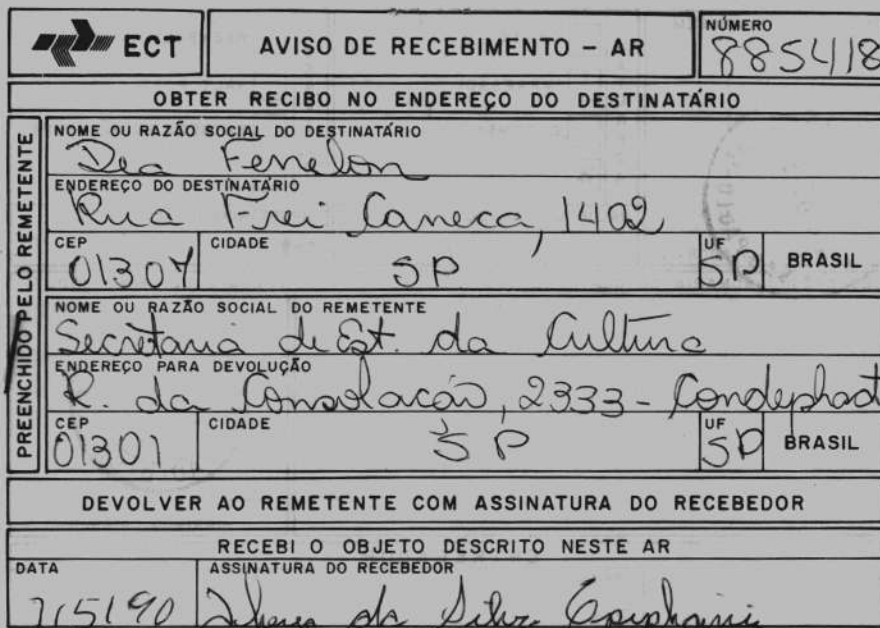 ECT
AVISO DE RECEBIMENTO - AR
NÚMERO
885418
OBTER RECIBO NO ENDEREÇO DO DESTINATÁRIO
PREENCHIDO PELO REMETENTE
NOME OU RAZÃO SOCIAL DO DESTINATÁRIO
Dea Fenelon
ENDEREÇO DO DESTINATÁRIO
Rua Frei Caneca, 1402
CEP CIDADE UF
01307 SP SP BRASIL
NOME OU RAZÃO SOCIAL DO REMETENTE
Secretaria de Est. da Cultura
ENDEREÇO PARA DEVOLUÇÃO
R. da Consolação, 2333 - Condephaat
CEP CIDADE UF
01301 SP SP BRASIL
DEVOLVER AO REMETENTE COM ASSINATURA DO RECEBEDOR
RECEBI O OBJETO DESCRITO NESTE AR
DATA ASSINATURA DO RECEBEDOR
7/5/90 da Silva